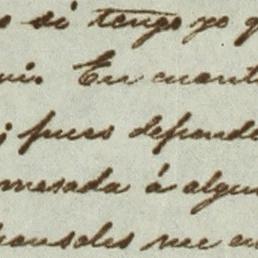 si tengo yo
En cuant
pues depende
mesada á algu
me en